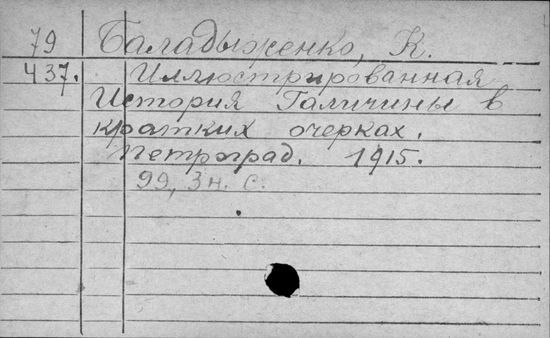 79 Баладыженко, К.
437. Иллюстрированная
История Галичины в
кратких очерках.
Петроград. 1915.
99, 3н. с.